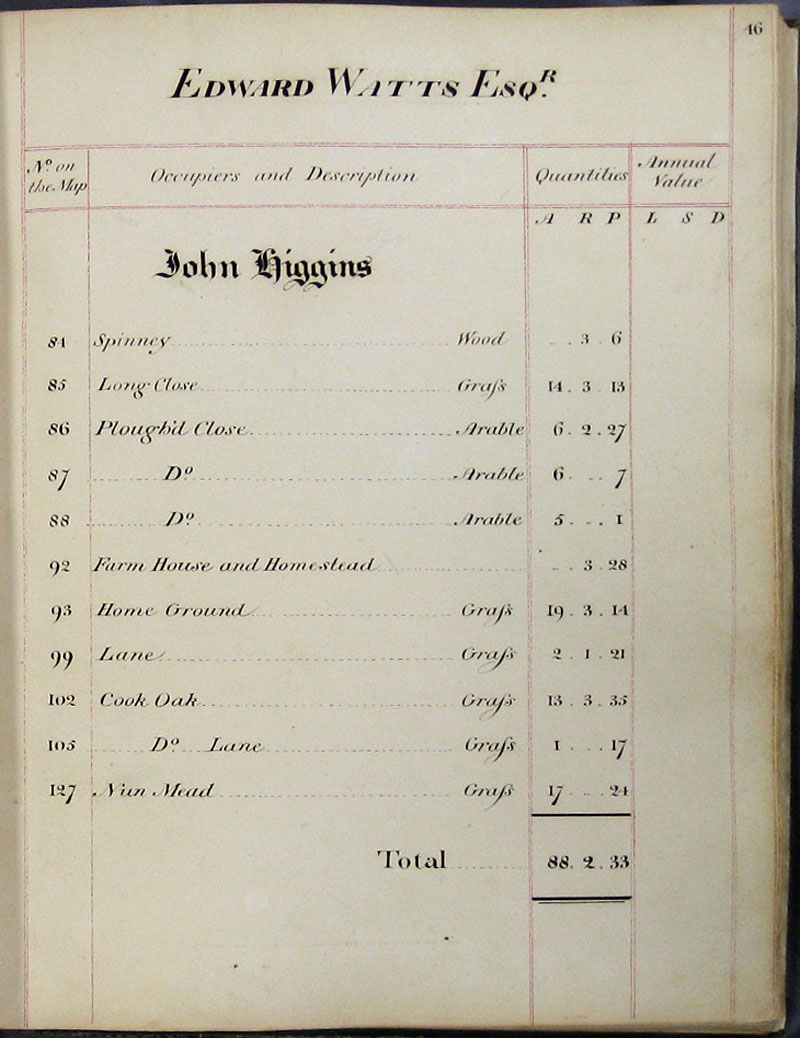 46
EDWARD WATTS ESQ.R
No. on the Map Occupiers and Description Quantities Annual Value
A R P L S D
John Higgins
84 Spinney Wood . 3 . 6
85 Long Close Graſs 14 . 3 . 13
86 Plough'd Close Arable 6 . 2 . 27
87 Do. Arable 6 . . . 7
88 Do. Arable 5 . . . 1
92 Farm House and Homestead . . 3 . 28
93 Home Ground Graſs 19 . 3 . 14
99 Lane Graſs 2 . 1 . 21
102 Cook Oak Graſs 13 . 3 . 35
105 Do. Lane Graſs 1 . . . 17
127 Nun Mead Graſs 17 . . . 24
Total 88 . 2 . 33